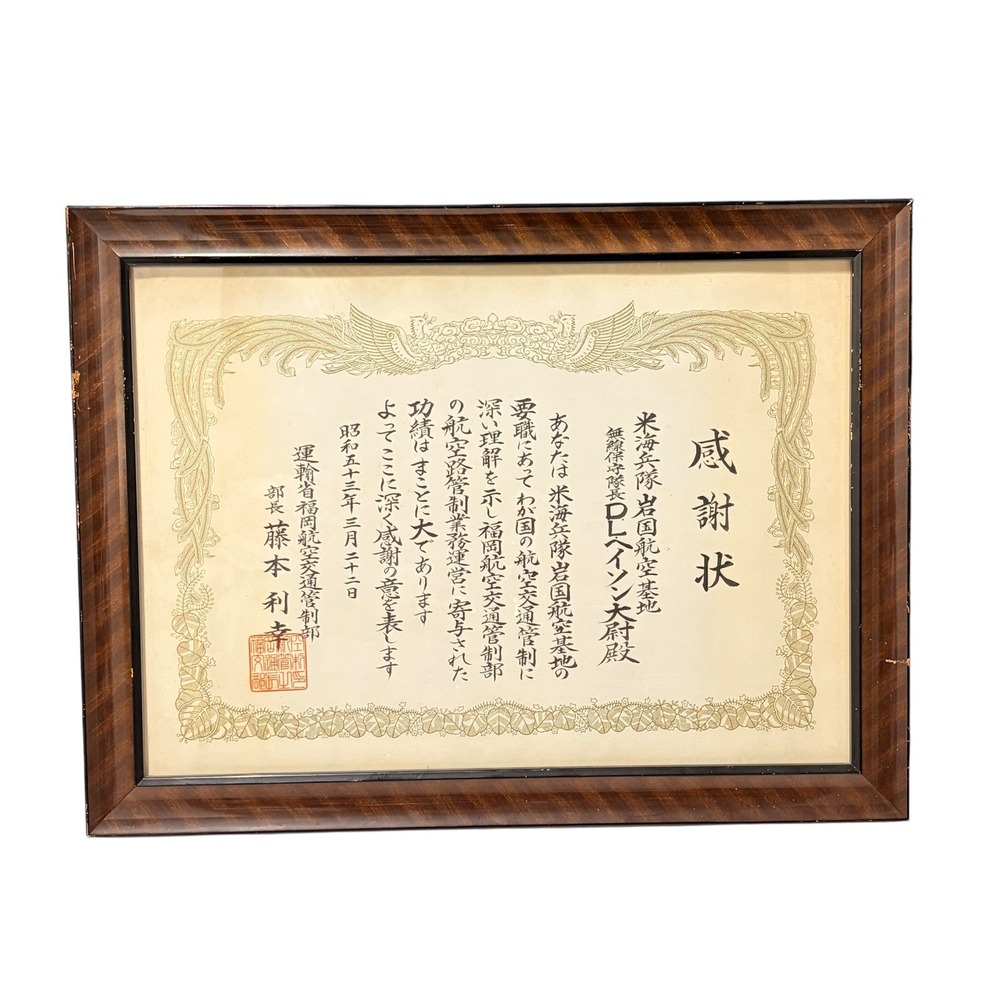 感謝状
米海兵隊 岩国航空基地
無線保守隊長 DLヘイソン大尉殿
あなたは 米海兵隊岩国航空基地の
要職にあって わが国の 航空交通管制に
深い理解を示し 福岡航空交通管制部
の航空路管制業務運営に 寄与された
功績は まことに大であります
よって ここに 深く感謝の意を表します
昭和五十三年 三月 二十二日
運輸省福岡航空交通管制部
部長 藤本利幸